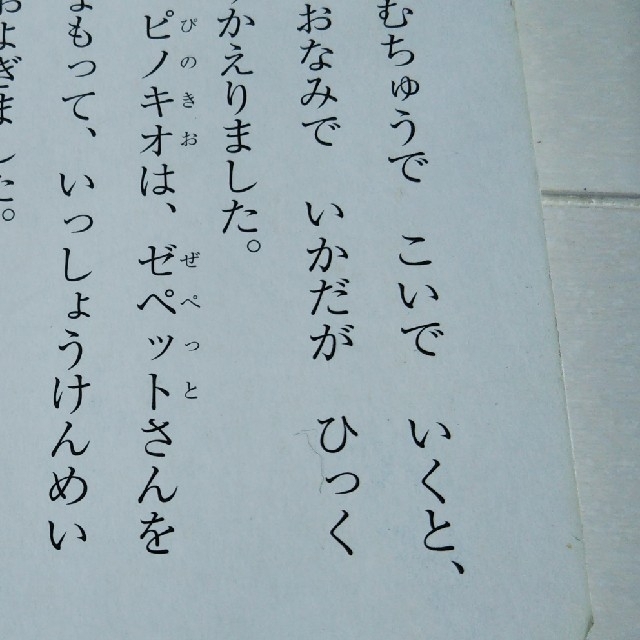 むちゅうで こいで いくと、
おなみで いかだが ひっく
かえりました。
ピノキオは、ゼペットさんを
もって、いっしょうけんめい
およぎました。